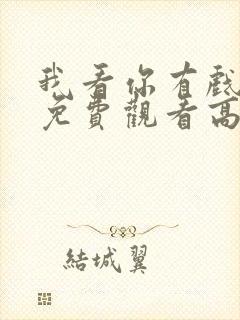 我看你有戲
免費觀看高
結城翼